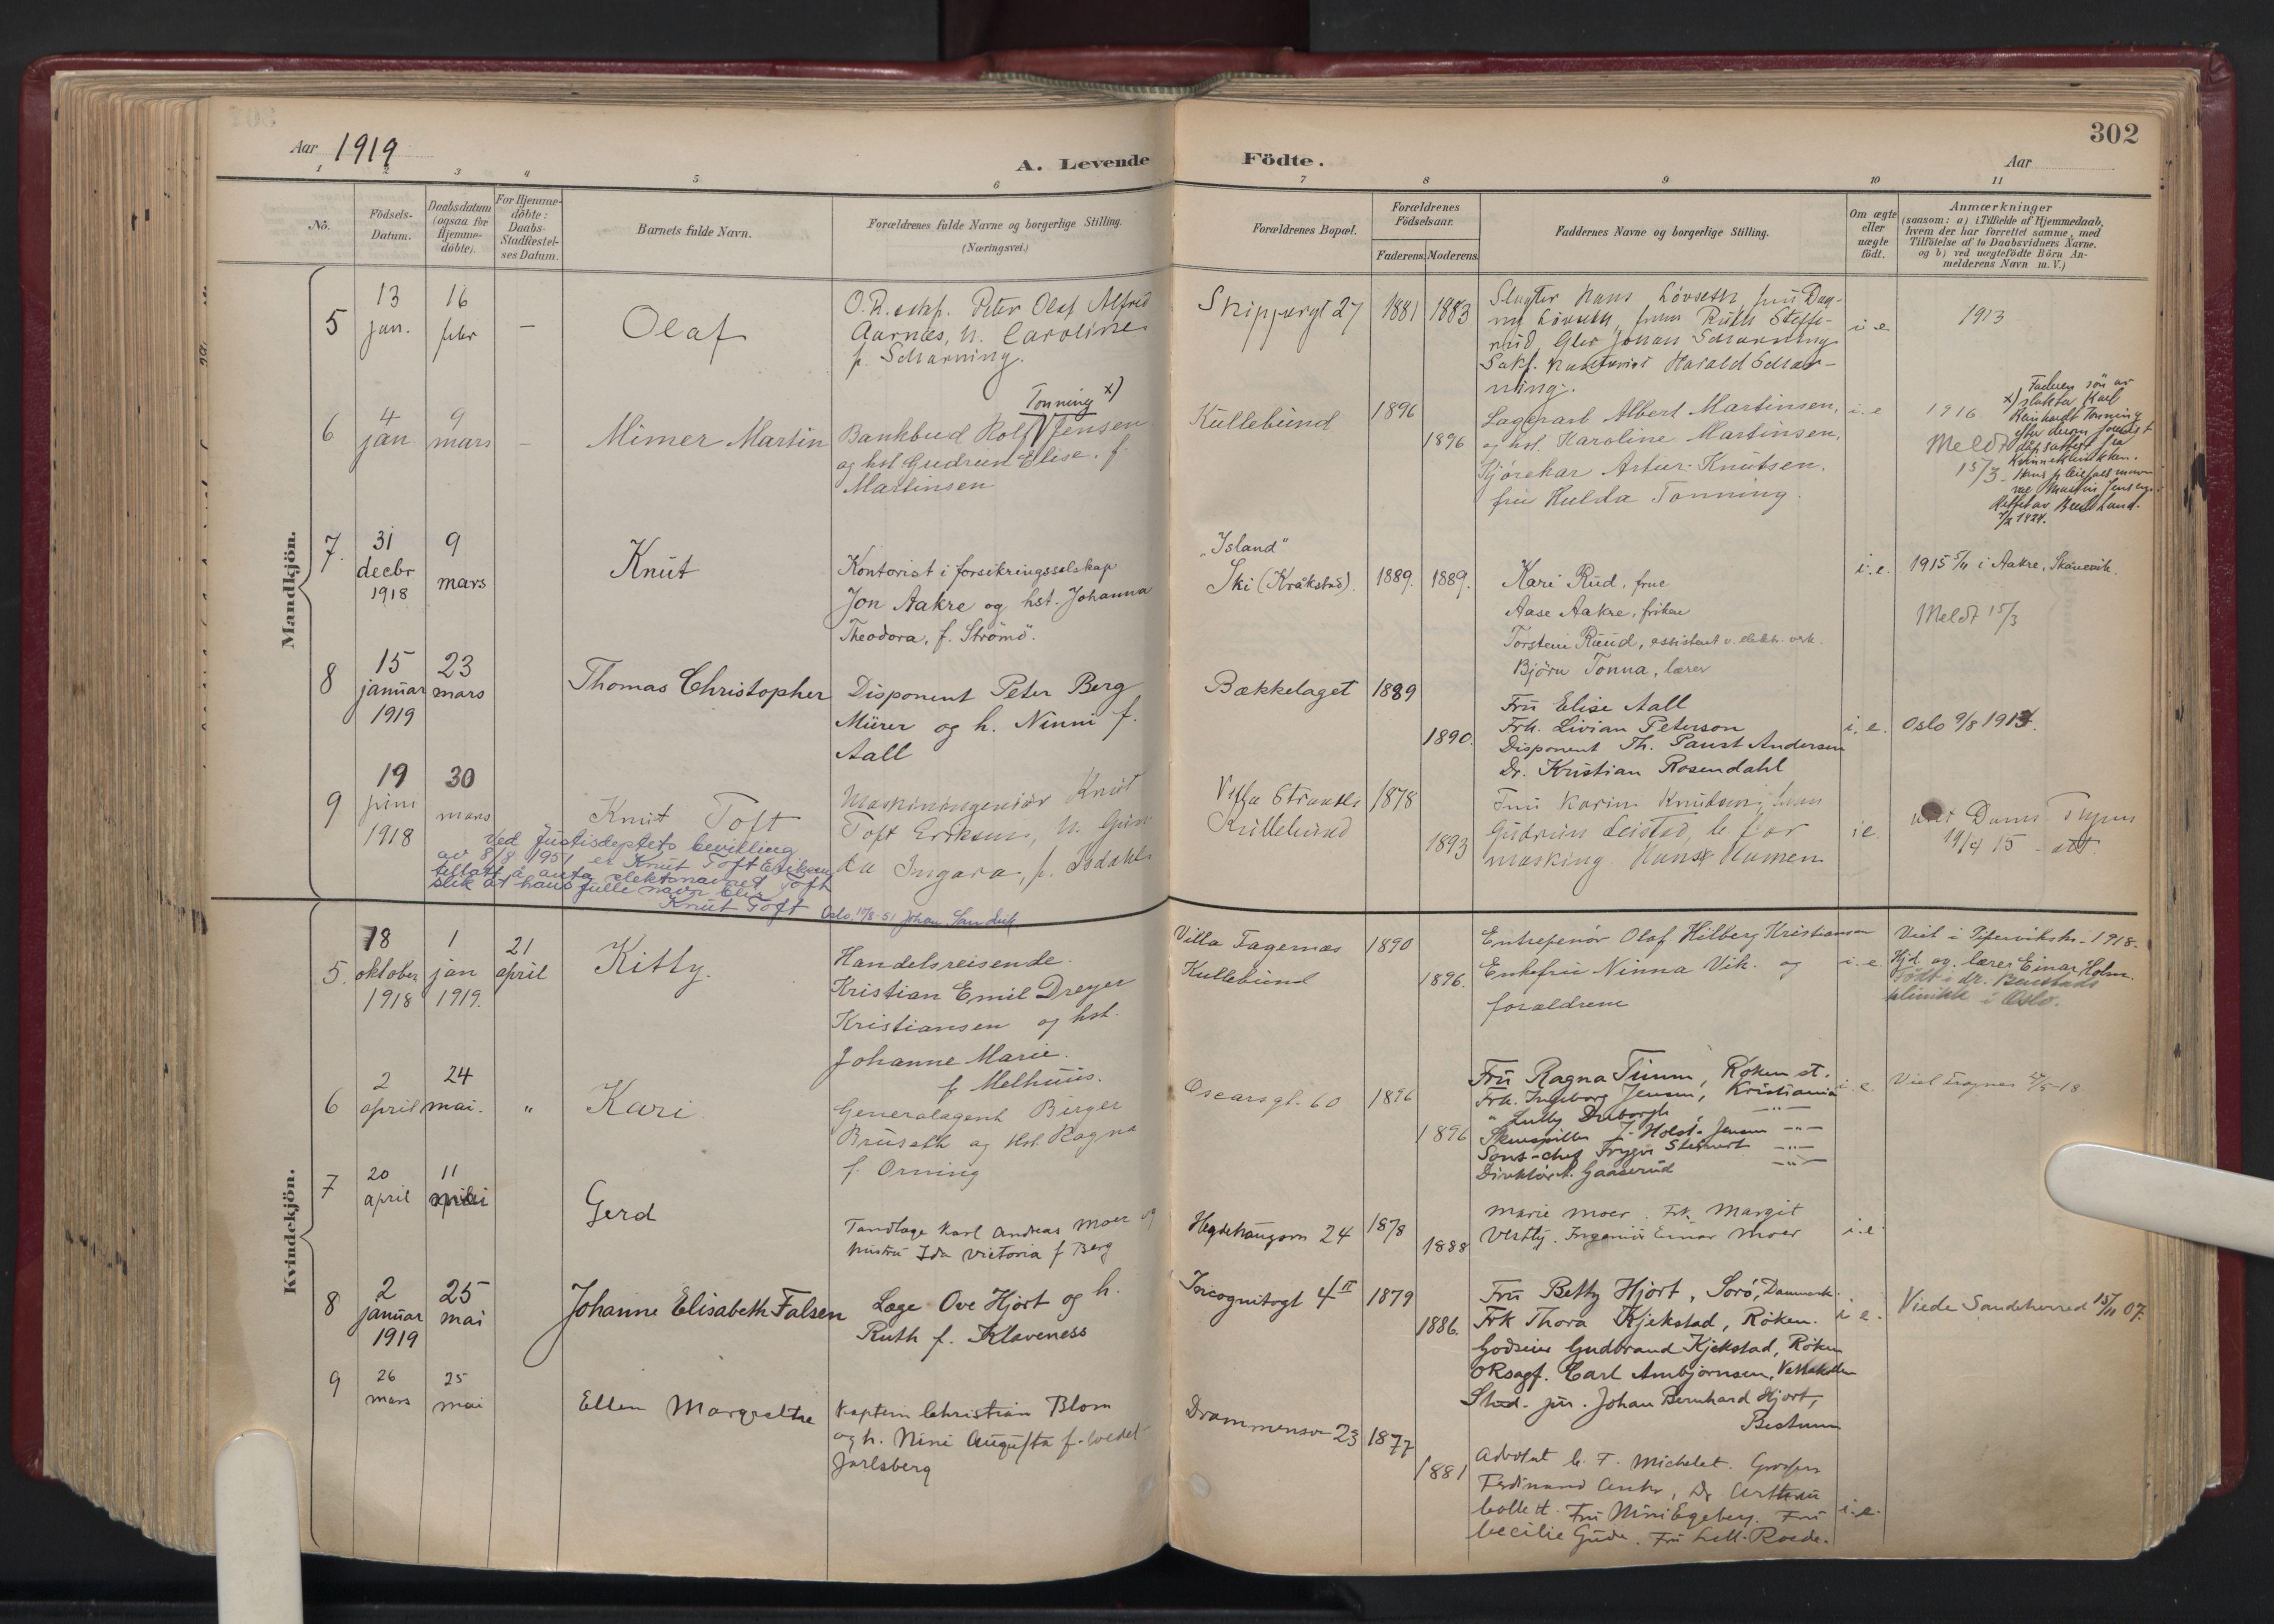 Aar 1919
A. Levende Födte.
302
Aar
1 2 3 4 5 6 7 8 9 10 11
No.
Födsels-
Datum.
Daabsdatum
(ogsaa for
Hjemme-
döbte).
For Hjemme-
döbte:
Daabs-
Stadfæstel-
ses Datum.
Barnets fulde Navn.
Forældrenes fulde Navne og borgerlige Stilling.
(Næringsvei.)
Forældrenes Bopæl.
Forældrenes
Födselsaar.
Faderens. Moderens.
Faddernes Navne og borgerlige Stilling.
Om ægte
eller
uægte
födt.
Anmærkninger
(saasom: a) i Tilfælde af Hjemmedaab,
hvem der har forrettet samme, med
Tilföielse af to Daabsvidners Navne.
og b) ved uægtefödte Börn An-
melderens Navn m. V.)
Mandkjön.
5
13
jan.
16
febr
—
Olaf
Peter Olaf Alfred
Aarnæs, h. Caroline
f. Scharning.
Skippergt 27
1881
1883
Slagter Hans Lövseth, fru Dag-
ny Lövseth, Ruth Steffe-
rud, Johan Scharning
Harald Schar-
ning.
i e
1913
6
4
jan
9
mars
—
Mimer Martin
Tonning x)
Bankbud Rolf V Jensen
og hst Gudrun Elise. f.
Martinsen
Kullebund
1896
1896
Lagerarb Albert Martinsen,
og hst. Karoline Martinsen,
Kjörekar Artur Knutsen.
fru Hulda Tonning.
i. e
1916
Meldt
15/3
x) Faderen sön av
slakter Karl
Reinhardt Tonning
fra
7.
31
decbr
1918
9
mars
Knut
Kontorist i forsikringsselskap
Jon Aakre og hst. Johanna
Theodora, f. Strömö.
"Island"
Ski (Kråkstad).
1889.
1889.
Kari Rud, frue
Aase Aakre, fröken
Torstein Ruud, assistent v. elektr. verk.
Björn Tonna, lærer
i. e.
1915 5/11 i Aakre, Skånevik.
Meldt 15/3
8
15
januar
1919
23
mars
Thomas Christopher
Disponent Peter Berg
Mürer og h. Ninni f.
Aall
Bækkelaget
1889
1890.
Fru Elise Aall
Frk. Livian Peterson
Disponent Th. Paust Andersen
Dr. Kristian Rosendahl
i. e.
Oslo 9/8
9
19
juni
1918
30
mars
Knut Toft
Maskiningeniör Knut
Toft Eriksen, h. Gun
da Ingara, f. Isdahl
Villa
Kullebund
1878
1893
Fru Karin Knudsen,
Gudrun Leistad,
Hans Hansen
i e
19/4 15
Ved Justisdeptets bevilling
av 8/8 1951 er Knut Toft Eriksen
tillatt å anta slektsnavnet Toft
slik at hans fulle navn blir
Knut Toft Oslo, 17/8-51 Johan
Kvindekjön.
5.
18
oktober
1918
1
jan
1919.
21
april
Kitty.
Handelsreisende.
Kristian Emil Dreyer
Kristiansen og hst.
Johanne Marie.
f. Melhuus.
Villa Fagernæs
Kullebund
1890
1896.
Entrepenör Olaf Hilberg Kristiansen
Enkefru Ninna Vik. og
forældrene
i. e.
Viet i Piperviksk. 1918.
Hjd. av lærer Einar Holm.
Födt i dr. Bentstads
klinikk i Oslo.
6
2
april
24
mai.
"
Kari
Generalagent Birger
Bruseth og hst. Ragna
f. Orning
Oscarsgt. 60
1896
1896
Fru Ragna Timm, Röken st.
Frk. Ingeborg Jensen, Kristiania
" Lully
Skuespiller J. Holst-Jensen —"—
Sous-chef Trygve —"—
Direktör Gaaserud —"—
i. e.
Viet Uranes
7
20
april
11
mai
Gerd
Tandlæge Karl Andreas Moer og
hustru Ida Victoria f Berg
Hegdehaugsvn 24
1878
1888
Marie Moer. Frk. Margit
Vestby. Ingeniör Einar Moer
i. e
8
2
januar
1919
25
mai
Johanne Elisabeth Falsen
Læge Ove Hjort og h.
Ruth f. Klaveness
Incognitogt 4 II
1879
1886.
Fru Betty Hjort, Sorö, Danmark.
Frk Thora Kjekstad, Röken.
Godseier Gudbrand Kjekstad, Röken
ORsagf. Carl Ambjörnsen, Vettakollen
Stud. jur. Johan Bernhard Hjort,
Bestum
i e.
Viede Sandeherred 15/11 07.
9
26
mars
25
mai
Ellen Margrethe
Kaptein Christian Blom
og h. Nini Augusta f. Wedel
Jarlsberg
Drammensv 23
1877
1881
Advokat C. F. Michelet. Grosserer
Ferdinand Dr. Arthur
Collett. Fru Nini Egeberg. Fru
Cecilie Gude. Fru Roede.
i. e.